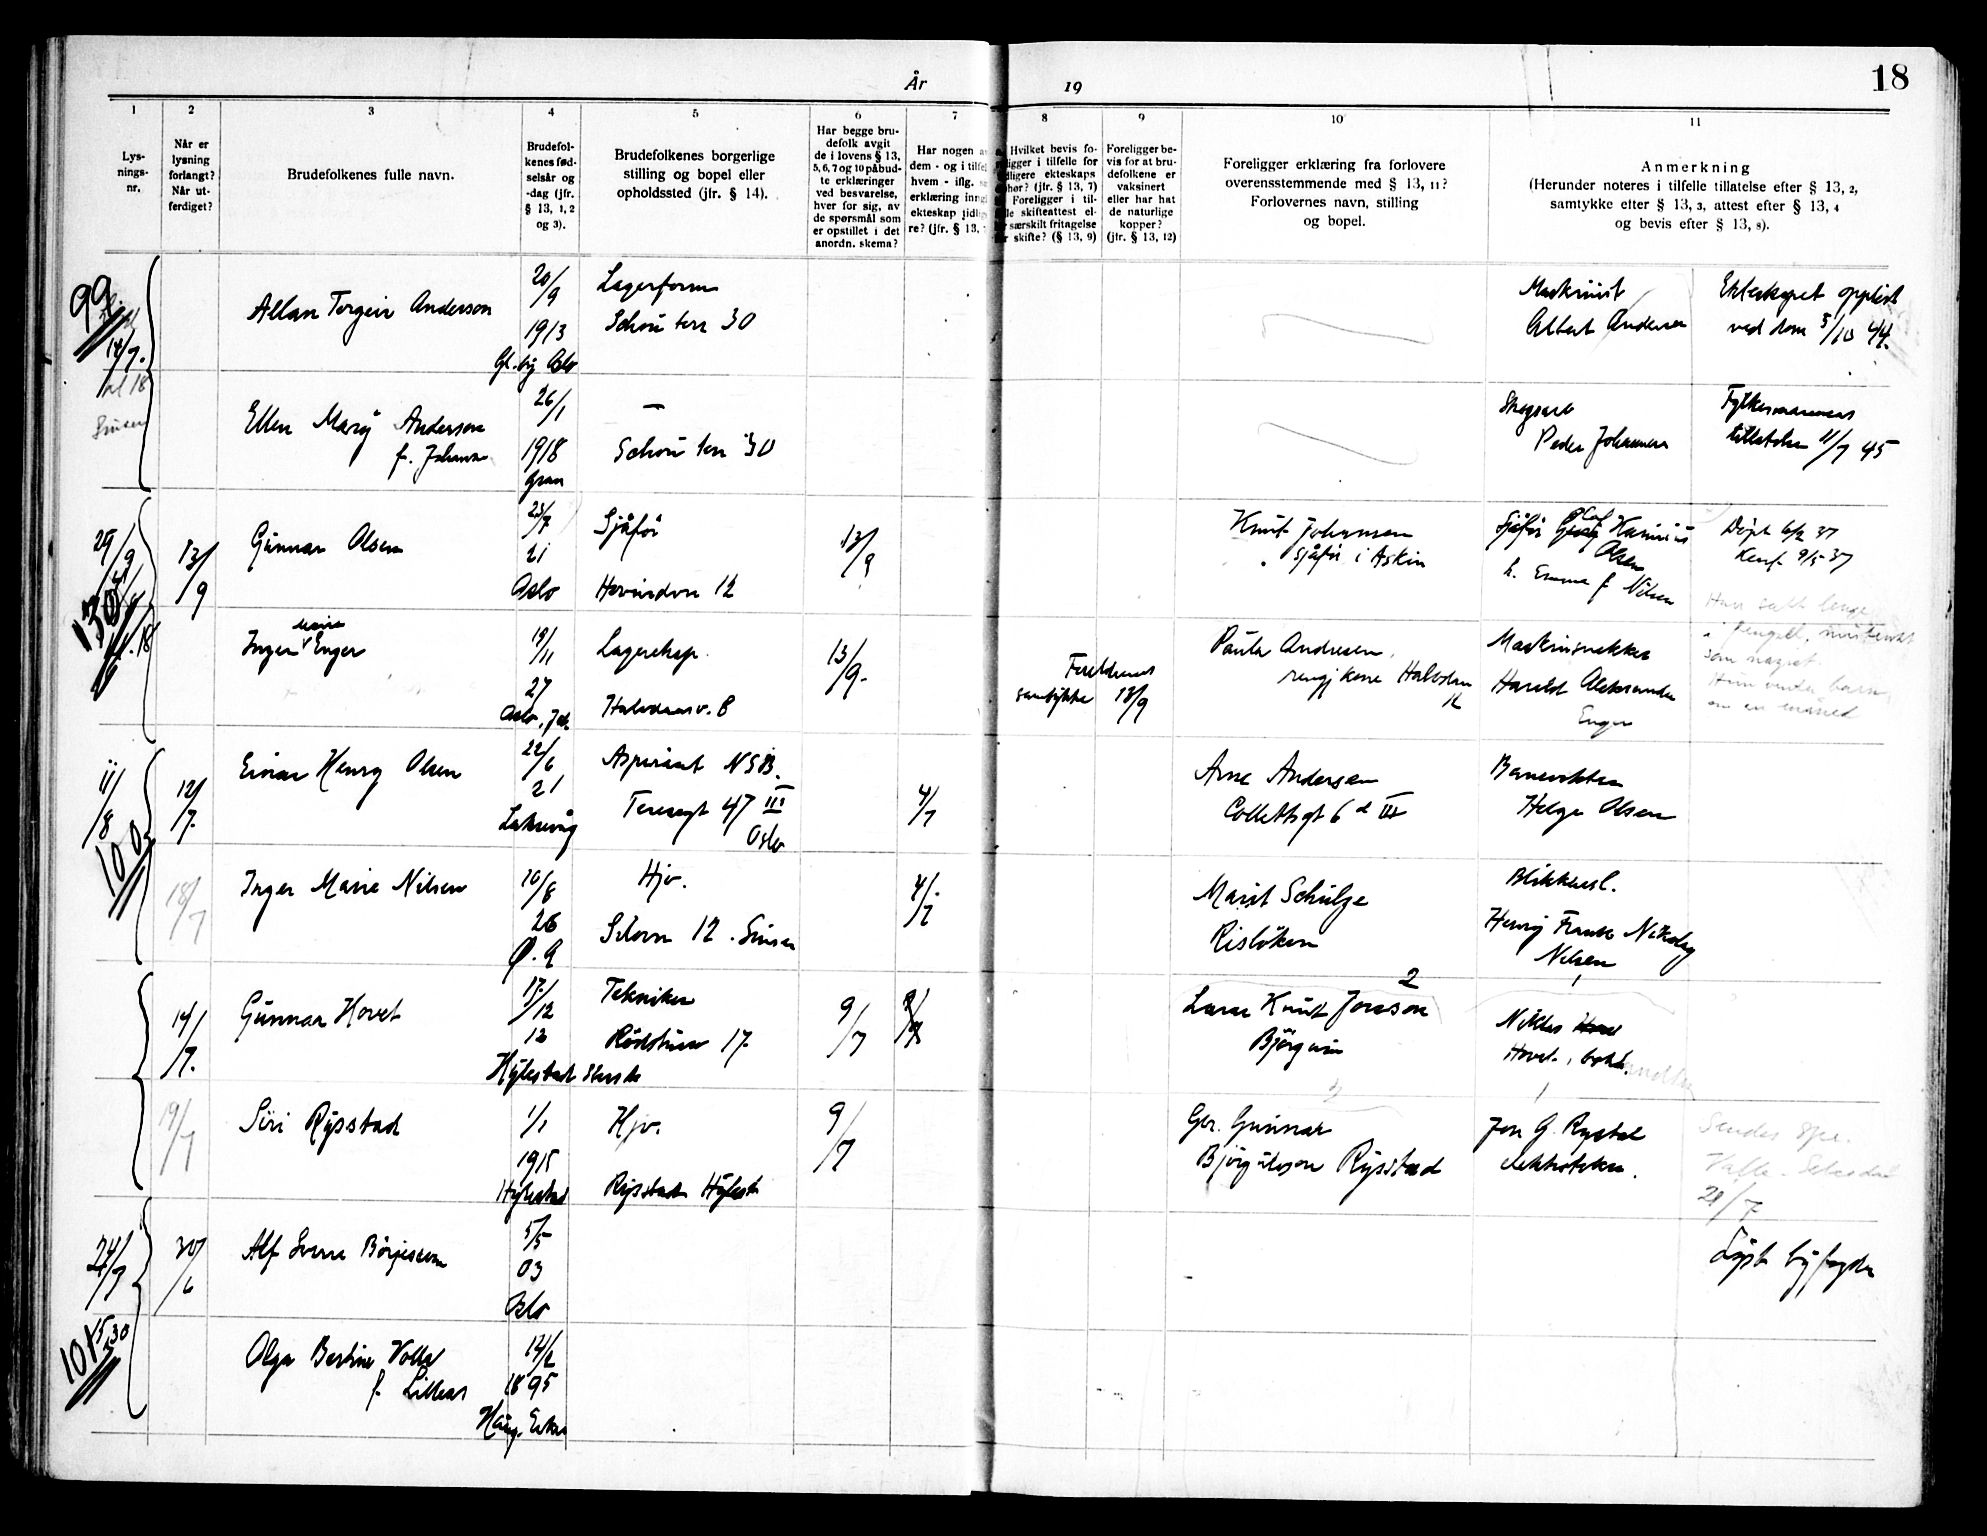 År
19
18
1
2
3
4
5
6
7
8
9
10
11
Lys-
nings-
nr.
Når er
lysning
forlangt?
Når ut-
ferdiget?
Brudefolkenes fulle navn.
Brudefol-
kenes fød-
selsår og
-dag (jfr.
§ 13, 1, 2
og 3).
Brudefolkenes borgerlige
stilling og bopel eller
opholdssted (jfr. § 14).
Har begge bru-
defolk avgit
de i lovens § 13,
5, 6, 7 og 10 påbud-
te erklæringer
ved besvarelse,
hver for sig, av
de spørsmål som
er opstillet i det
anordn. skema?
Har nogen a
dem - og i tilfel
hvem - iflg.
erklæring inng
ekteskap tidlig
re? (jfr. § 13,
Hvilket bevis fo-
religger i tilfelle for
tidligere ekteskaps
ophør? (jfr. § 13, 7)
Foreligger i til-
felle skifteattest el-
ler særskilt fritagelse
for skifte? (§ 13, 9)
Foreligger be-
vis for at bru-
defolkene er
vaksinert
eller har hat
de naturlige
kopper?
(jfr. § 13, 12)
Foreligger erklæring fra forlovere
overensstemmende med § 13, 11?
Forlovernes navn, stilling
og bopel.
Anmerkning
(Herunder noteres i tilfelle tillatelse efter § 13, 2,
samtykke efter § 13, 3, attest efter § 13, 4
og bevis efter § 13, 8).
99
14/7.
kl 18
Sinsen
Allan Torgeir Anderson
20/9
1913
Gl. by Oslo
Lagerform
Schou terr 30
Maskinist
Albert Andersen
Ekteskapet oppløst
ved dom 5/10 44.
Ellen Mary Anderson
f. Johans
26/1
1918
Gran
—
Schou terr 30
Peder Johannesen
Fylkesmannens
tillatelse 11/7 45
29/9
130
13/9
Gunnar Olsen
23/7
21
Oslo
Sjåfør
Hovindvn 12
13/9
Knut Johansen
sjåfør i Askim
Sjåfør Olaf Hannius
Olsen
h. Emma f. Nilsen
Døpt 6/2 37
Konf. 9/5 37
Inger Marie Enger
19/11
27
Oslo, Jak.
Lagereksp.
Halvdansv. 8
13/9.
Foreldrenes
samtykke 13/9
Paula Andresen,
rengj.kone Halvdan
12
Maskinsnekker
Harald Aleksander
Enger
Hun venter barn
om en måned
11/8
100
12/7.
18/7
Einar Henry Olsen
22/6
21
Laksevåg
Aspirant NSB.
Teresegt 47 III
Oslo
4/7
Arne Andersen
Collettsgt 6 d III
Banevokter
Helge Olsen
Inger Marie Nilsen
10/8
26
Ø. A
Hjv.
Silovn 12. Sinsen
4/7
Marit Schulze
Risløkken
Blikkensl.
Henry Frank Nikolay
Nilsen
14/7.
19/7
Gunnar Hovet
17/12
12
Hylestad
Tekniker
Rødstuen 17.
9/7
2
Lars Knut Jonsson
Bjørgum
Niklas
Hovet.
Siri Rysstad
1/1
1915
Hylestad
Hjv.
Rysstad Hylest
9/7
Gbr. Gunnar
Bjørgulvson Rysstad
Jon G. Rystad
Sendes spr.
Valle - Setesdal
21/7
24/7
101
5.30
30/6
Alf Sverre Börjesson
5/5
03
Oslo
Lyst byfogden
Olga Bertine Volld
f. Lilleås
14/2
1895
Haug. Eiker